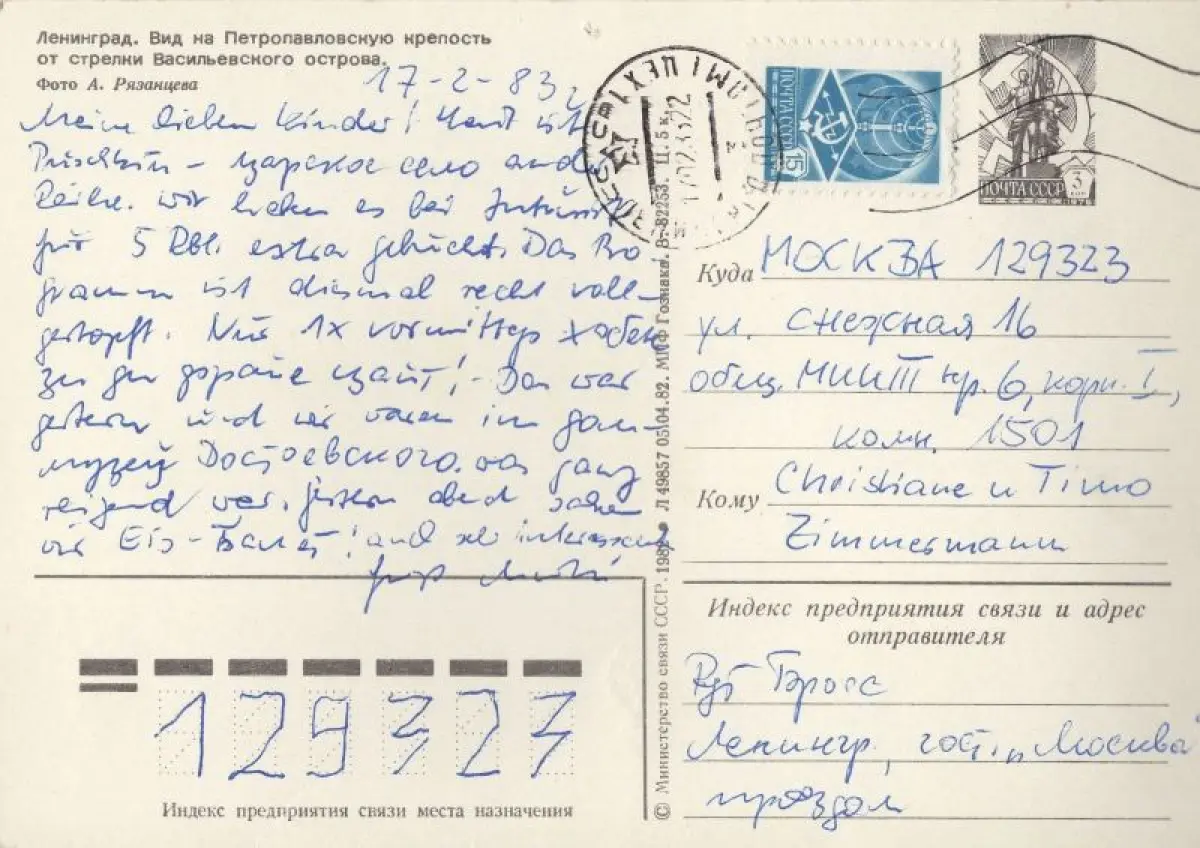 Ленинград. Вид на Петропавловскую крепость
от стрелки Васильевского острова.
Фото А. Рязанцева
17-2-83
Meine lieben Kinder! Heut ist
Puschkin - царское село and
Reihe. wir haben es bei Inturist
für 5 Rbl. extra gebucht. Das Pro
gramm ist diesmal recht voll-
gestopft. Nur 1x vormittags
Das war
gestern und wir waren im
музей Достоевского. was ganz
reizend war. Gestern abend sahen
wir Eis-Балет! and sehr interessant
ПОЧТА СССР
15
ПОЧТА СССР 3 КОП
1976
Куда МОСКВА 129323
ул. Снежная 16
общ. МИИТ пр. 6, корп. I,
комн. 1501
Кому Christiane u Timo
Zimmermann
Индекс предприятия связи и адрес
отправителя
Гросс
Ленингр, гост. „Москва
проездом
129323
Индекс предприятия связи места назначения
© Министерство связи СССР. 1982 • Л 49857 05.04.82. МПФ Гознака. З. 82253. Ц. 5 к.